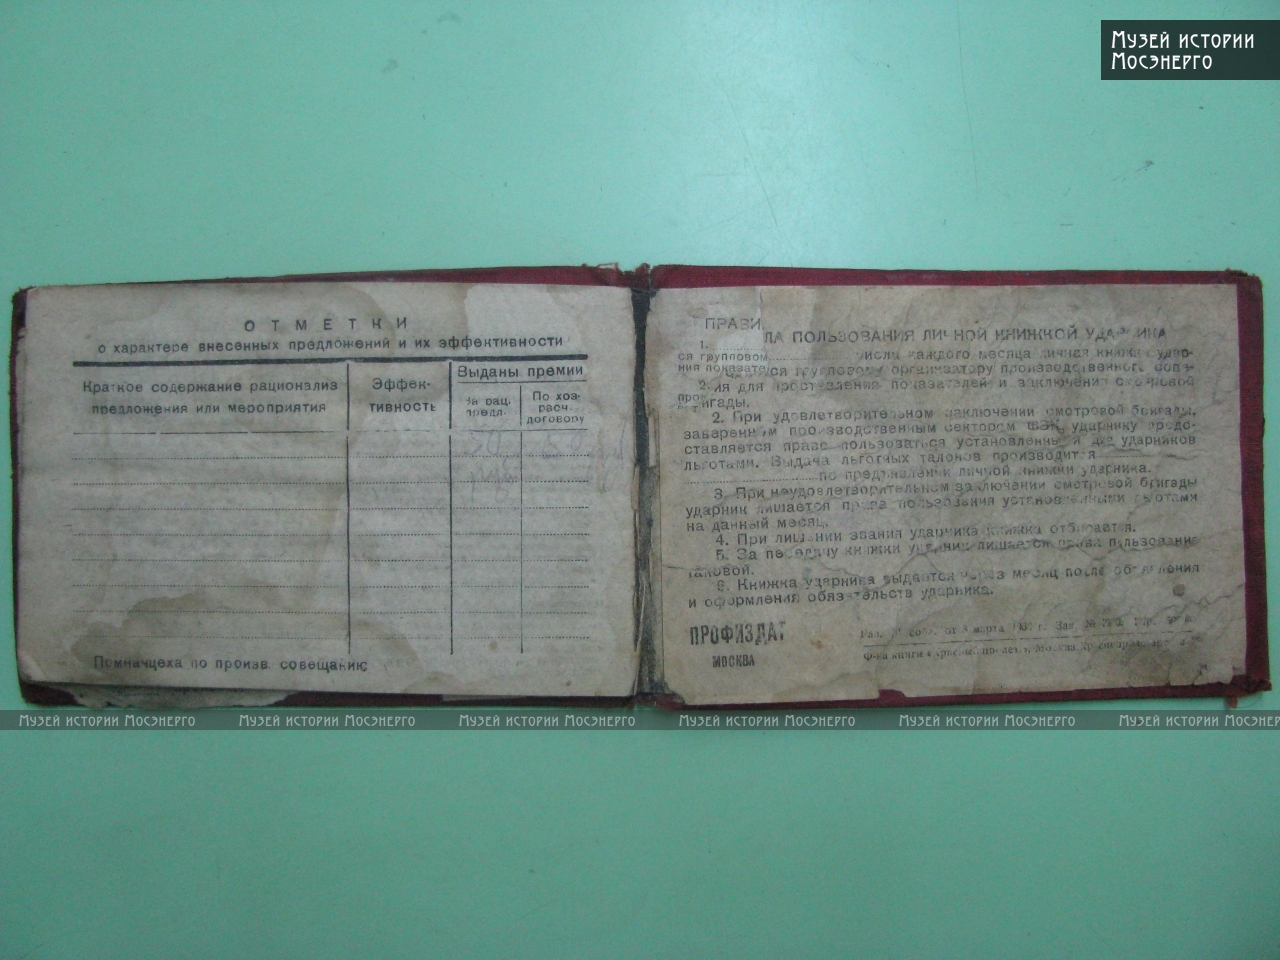 Музей истории
Мосэнерго
ОТМЕТКИ
о характере внесенных предложений и их эффективности
Краткое содержание рационализ
предложения или мероприятия
Эффек-
тивность
Выданы премии
За рац.
предл.
По хоз-
расч.
договору
Помначцеха по произв. совещанию
ПРАВИ
ЛА ПОЛЬЗОВАНИЯ ЛИЧНОЙ КНИЖКОЙ УДАРНИКА
1.
ся групповом числа каждого месяца личная книжка удар-
ния показате ся групповому организатору производственного
2. ия для проставления показателей и заключения смотровой
бригады.
2. При удовлетворительном заключении смотровой бригады,
заверенным производственным сектором ФЗК, ударнику предо-
ставляется право пользоваться установленными для ударников
льготами. Выдача льготных талонов производится
по предъявлении личной книжки ударника.
3. При неудовлетворительном заключении смотровой бригады
ударник лишается права пользования установленными льготами
на данный месяц.
4. При лишении звания ударника книжка отбирается.
5. За передачу книжки ударник лишается права пользования
таковой.
6. Книжка ударника выдается через месяц после объявления
и оформления обязательств ударника.
ПРОФИЗДАТ
МОСКВА
от 8 марта
Ф-ка книги
Музей истории Мосэнерго Музей истории Мосэнерго Музей истории Мосэнерго Музей истории Мосэнерго Музей истории Мосэнерго Музей истории Мосэнерго